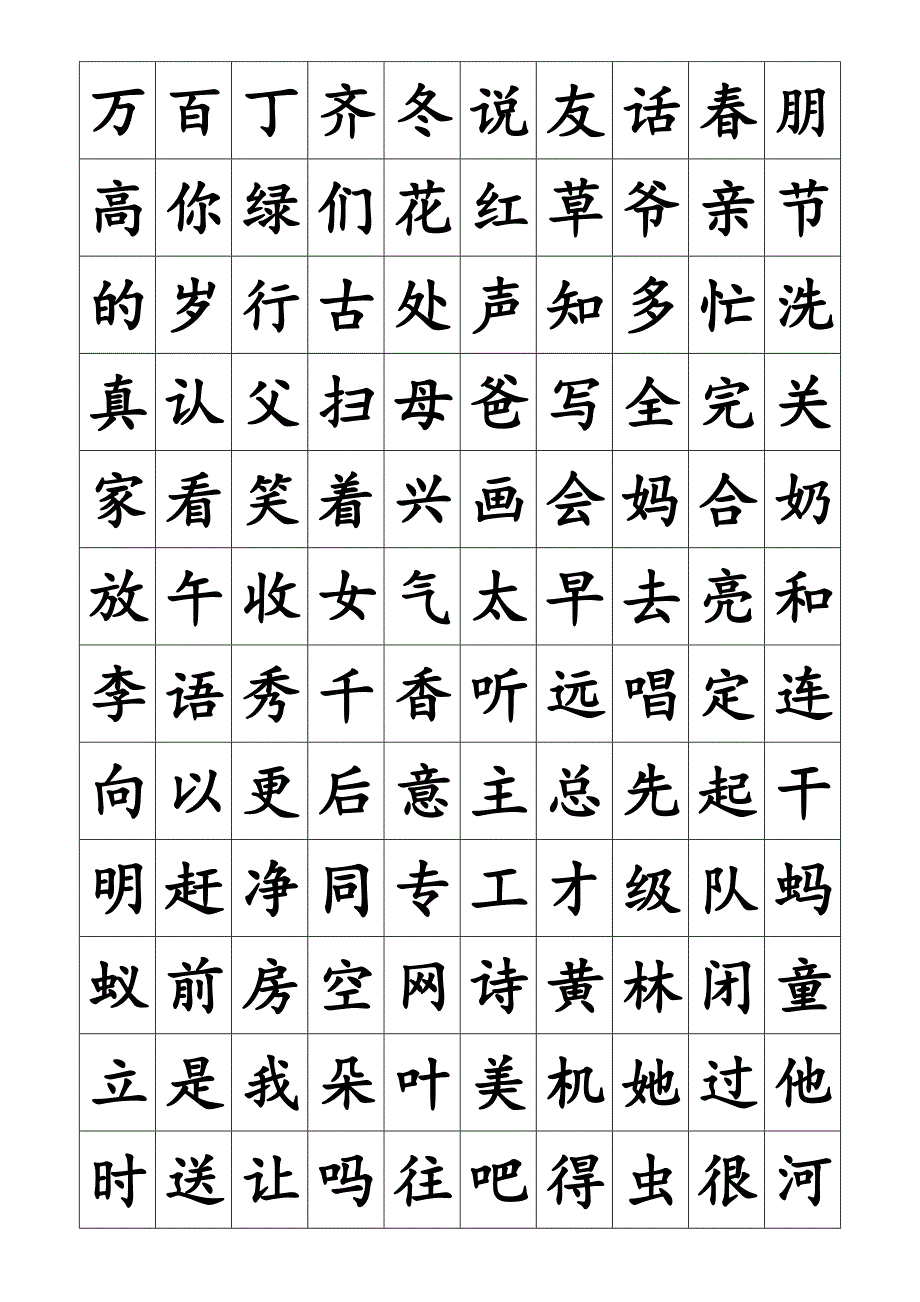 万百丁齐冬说友话春朋
高你绿们花红草爷亲节
的岁行古处声知多忙洗
真认父扫母爸写全完关
家看笑着兴画会妈合奶
放午收女气太早去亮和
李语秀千香听远唱定连
向以更后意主总先起干
明赶净同专工才级队蚂
蚁前房空网诗黄林闭童
立是我朵叶美机她过他
时送让吗往吧得虫很河